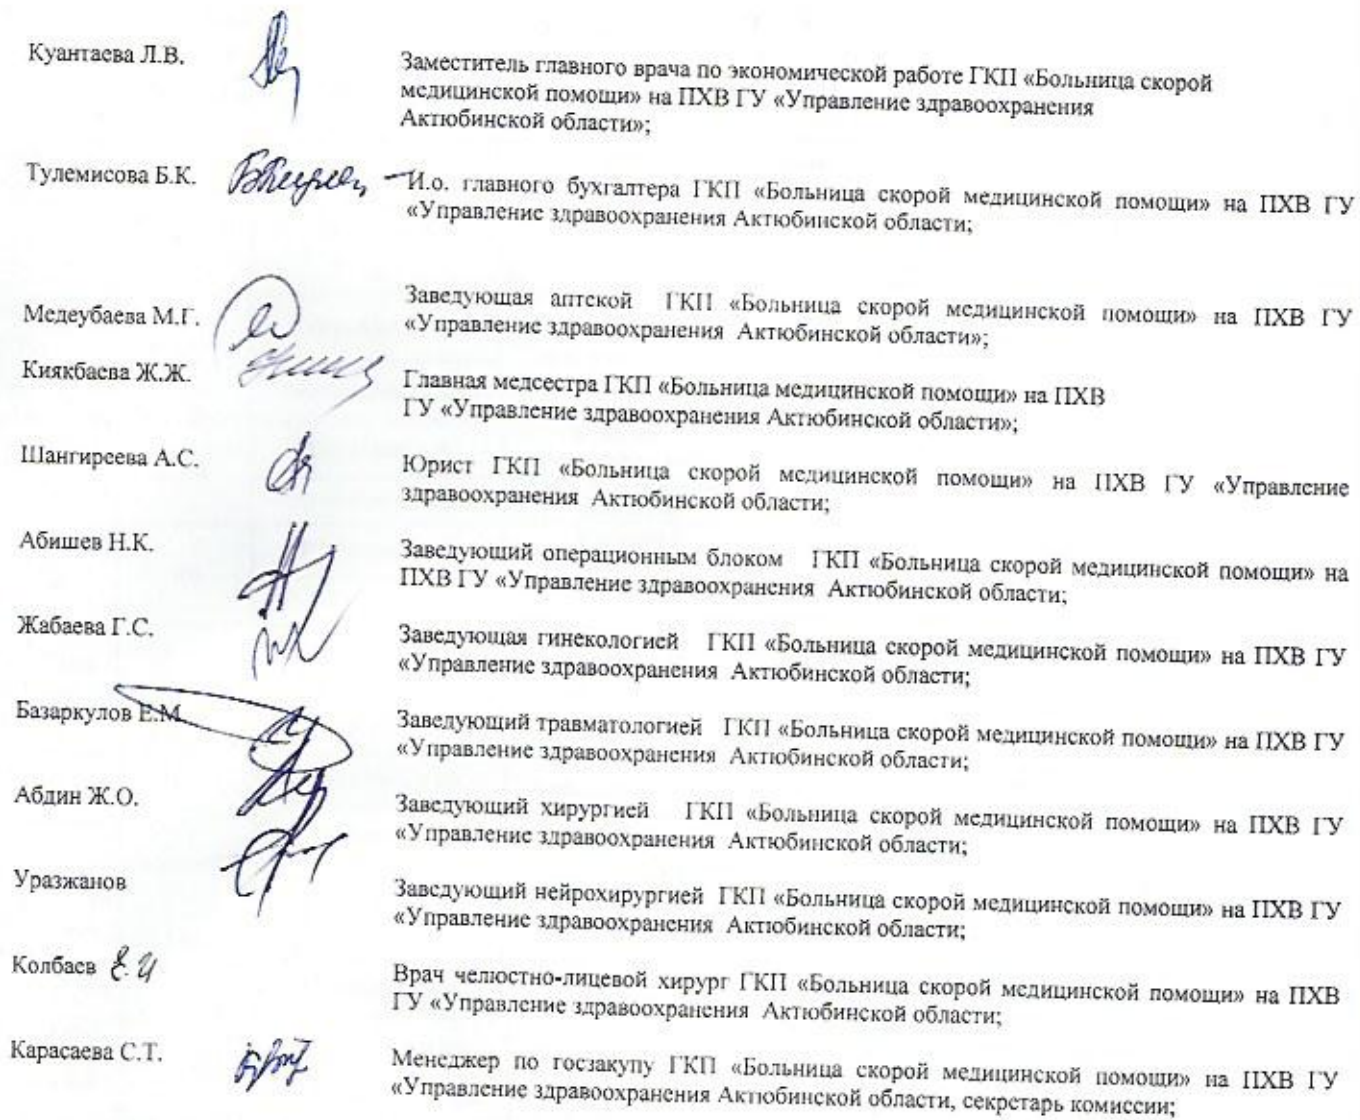 Куантаева Л.В.
Заместитель главного врача по экономической работе ГКП «Больница скорой
медицинской помощи» на ПХВ ГУ «Управление здравоохранения
Актюбинской области»;
Тулемисова Б.К.
И.о. главного бухгалтера ГКП «Больница скорой медицинской помощи» на ПХВ ГУ
«Управление здравоохранения Актюбинской области;
Медеубаева М.Г.
Заведующая аптекой ГКП «Больница скорой медицинской помощи» на ПХВ ГУ
«Управление здравоохранения Актюбинской области»;
Киякбаева Ж.Ж.
Главная медсестра ГКП «Больница медицинской помощи» на ПХВ
ГУ «Управление здравоохранения Актюбинской области»;
Шангиреева А.С.
Юрист ГКП «Больница скорой медицинской помощи» на ПХВ ГУ «Управление
здравоохранения Актюбинской области;
Абишев Н.К.
Заведующий операционным блоком ГКП «Больница скорой медицинской помощи» на
ПХВ ГУ «Управление здравоохранения Актюбинской области;
Жабаева Г.С.
Заведующая гинекологией ГКП «Больница скорой медицинской помощи» на ПХВ ГУ
«Управление здравоохранения Актюбинской области;
Базаркулов Е.М.
Заведующий травматологией ГКП «Больница скорой медицинской помощи» на ПХВ ГУ
«Управление здравоохранения Актюбинской области;
Абдин Ж.О.
Заведующий хирургией ГКП «Больница скорой медицинской помощи» на ПХВ ГУ
«Управление здравоохранения Актюбинской области;
Уразжанов
Заведующий нейрохирургией ГКП «Больница скорой медицинской помощи» на ПХВ ГУ
«Управление здравоохранения Актюбинской области;
Колбаев Е.И
Врач челюстно-лицевой хирург ГКП «Больница скорой медицинской помощи» на ПХВ
ГУ «Управление здравоохранения Актюбинской области;
Карасаева С.Т.
Менеджер по госзакупу ГКП «Больница скорой медицинской помощи» на ПХВ ГУ
«Управление здравоохранения Актюбинской области, секретарь комиссии;